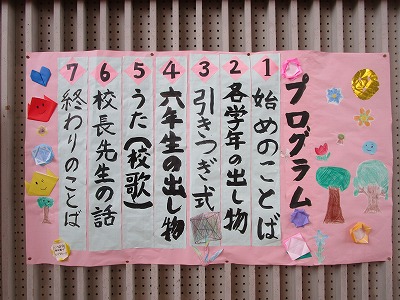 プログラム
1 始めのことば
2 各学年の出し物
3 引きつぎ式
4 六年生の出し物
5 うた(校歌)
6 校長先生の話
7 終わりのことば